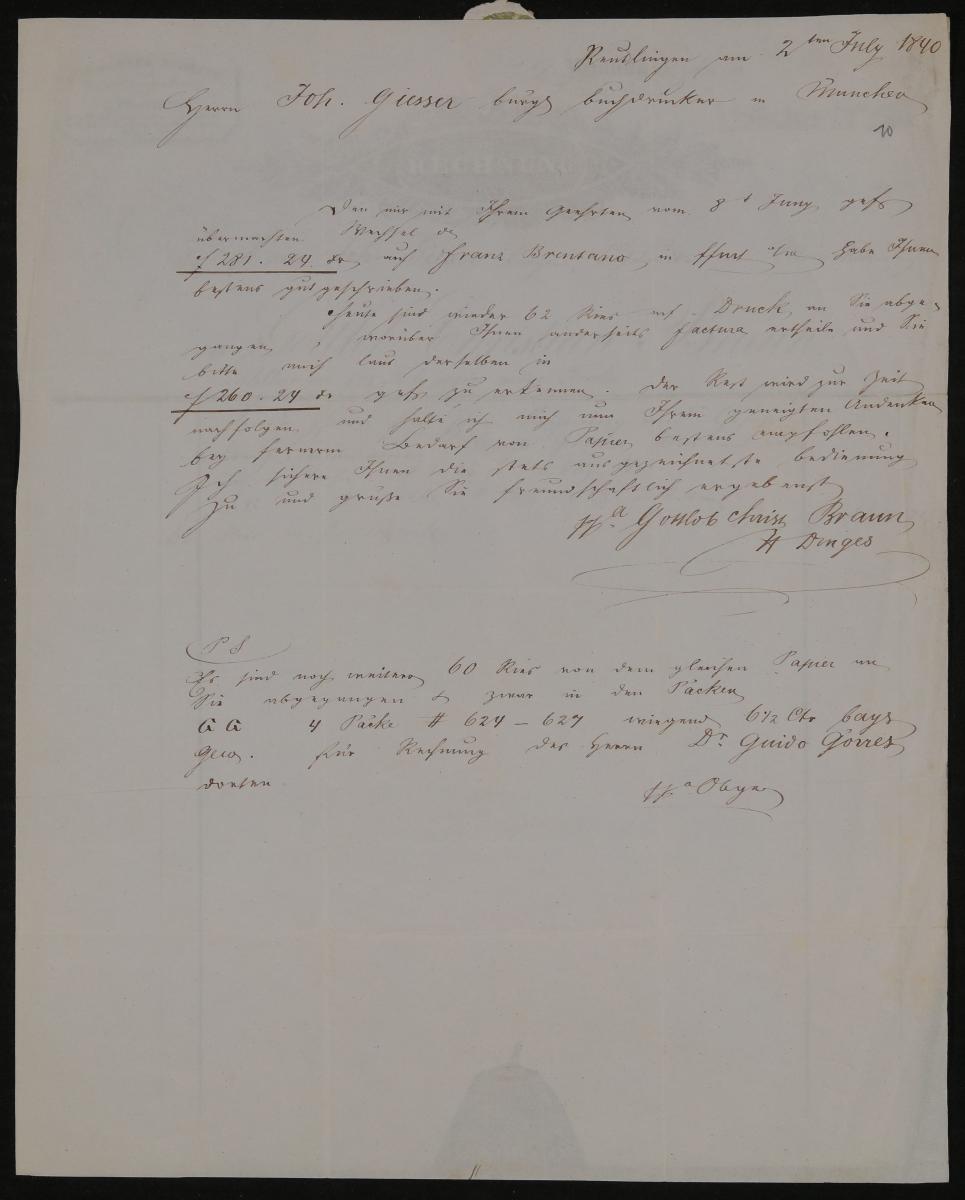 Reutlingen am 2ten July 1840
Herrn Joh. Giesser bürgl Buchdrucker in München
10
Den mir mit Ihrem Geehrten vom 8t Juny gefs
übermachten Wechsel
f 281. 24 xr auf Franz Brentano in ffurt a/m habe Ihnen
bestens gutgeschrieben.
Heute sind wieder 62 Ries Druck an Sie abge-
gangen, worüber Ihnen anderseits factura ertheile und Sie
bitte mich laut derselben in
f 260. 24 xr gefs zu erkennen. Der Rest wird zur Zeit
nachfolgen und halte ich mich nun Ihrem geneigten Andenken
bey fernerm Bedarf von Papier bestens empfohlen.
Ich sichere Ihnen die stets ausgezeichnetste Bedienung
zu und grüße Sie freundschaftlich ergebenst
ppa Gottlob Christ Braun
H Dinges
P S
Es sind noch weitere 60 Ries von dem gleichen Papier an
Sie abgegangen & zwar in den Päcken
GG 4 Päcke # 624 – 627 wiegend 6 1/2 Ctr bayr
Gew. für Rechnung des Herrn Dr. Guido Görres
dorten
ppa Obger